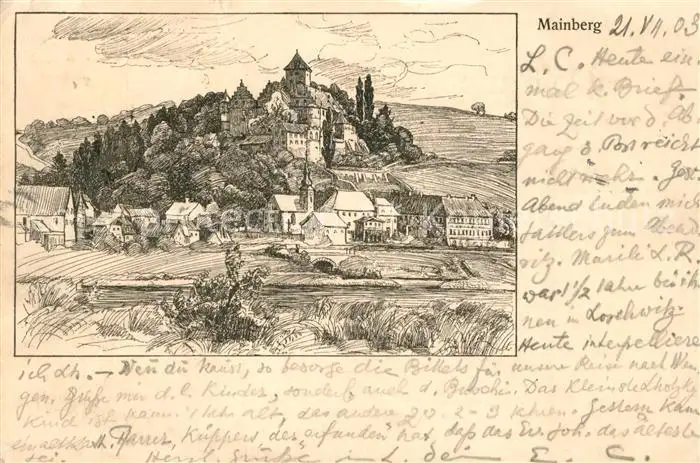 Mainberg 21.VII.03
L. C. Heute ein
mal k. Brief.
Die Zeit vor d. Ab
gang d. Post reicht
nicht mehr. Gest.
Abend luden mich
Sattlers zum Abend
L. R.
war 1 1/2 Jahr bei ih
nen in Loschwitz
Heute interpelliere
ich Lh. – Wenn du kannst, so besorge die Billets für unsere Reise nach
gen. Grüße mir d. l. Kinder, sondern auch d. Das
Kind ist kaum 1 Jahr alt, das andere 2-3 Jahren. Gestern kam
Pfarrer, Küppers, der "erfunden" hat, daß das Ev. Joh. das älteste
sei. Herzl. Grüße in L. dein E. C.